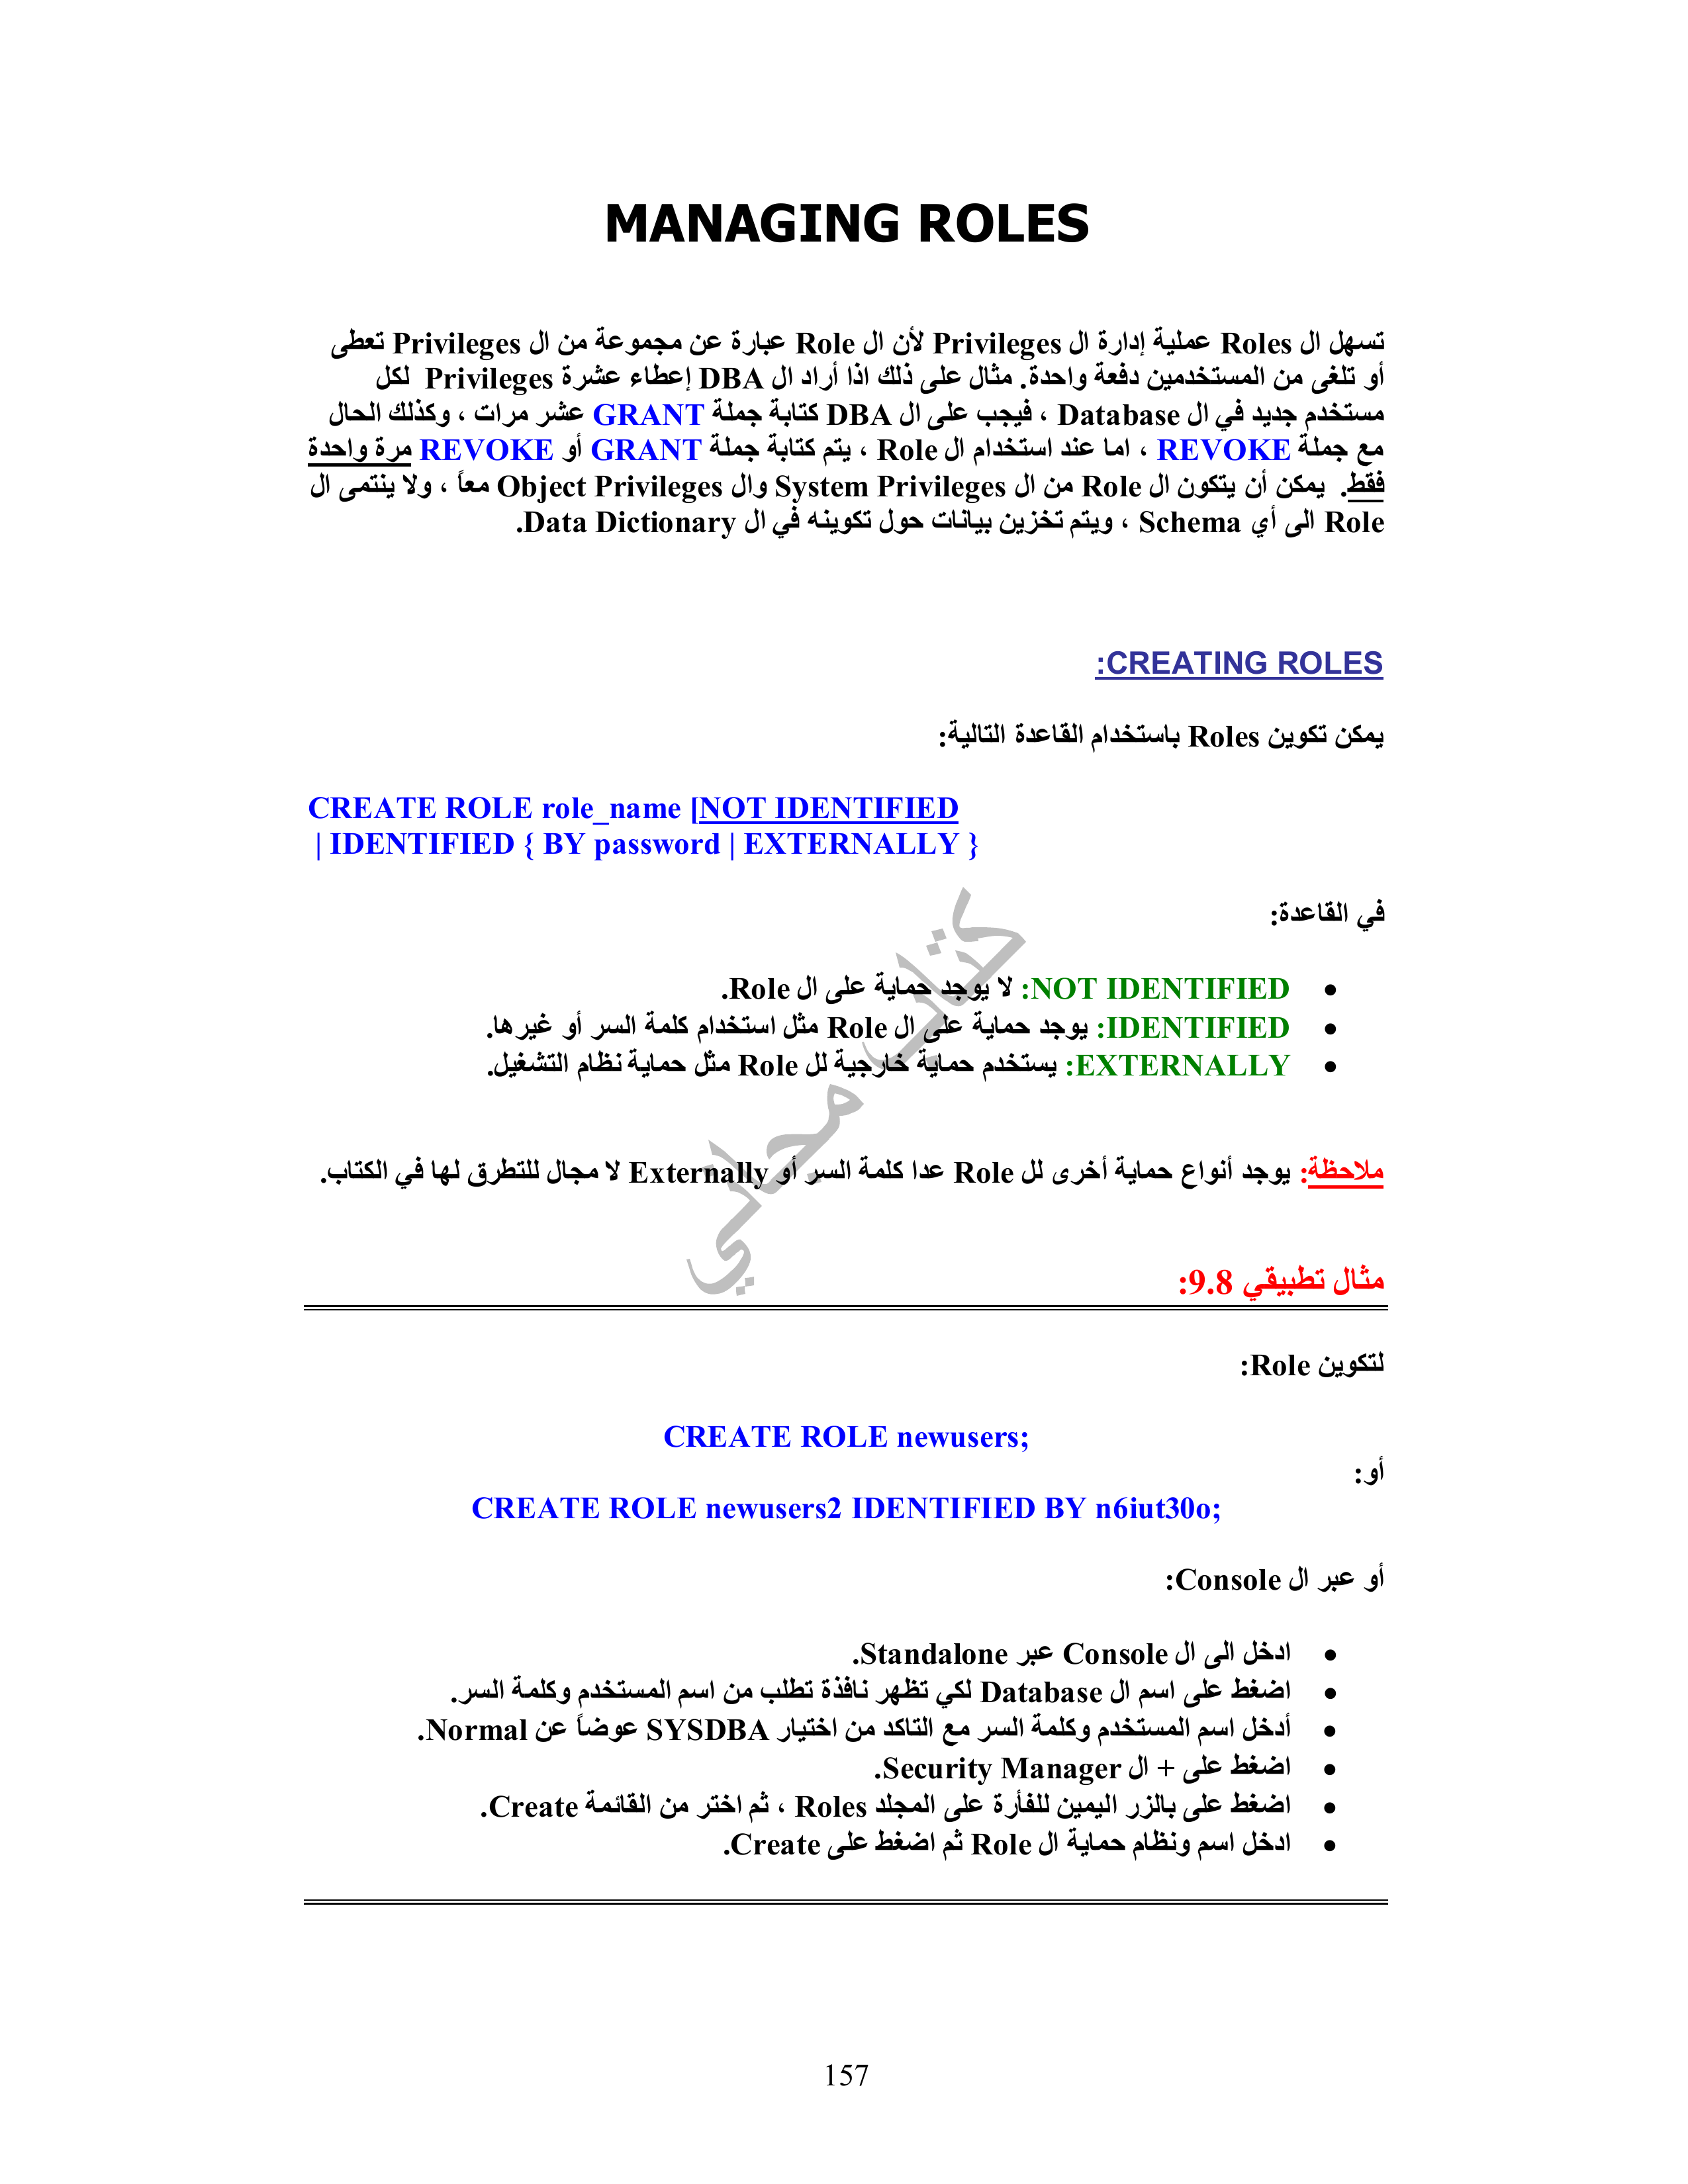 MANAGING ROLES
تسهل ال Roles عملية إدارة ال Privileges لأن ال Role عبارة عن مجموعة من ال Privileges تعطى
أو تلغى من المستخدمين دفعة واحدة. مثال على ذلك اذا أراد ال DBA إعطاء عشرة Privileges لكل
مستخدم جديد في ال Database ، فيجب على ال DBA كتابة جملة GRANT عشر مرات ، وكذلك الحال
مع جملة REVOKE ، اما عند استخدام ال Role ، يتم كتابة جملة GRANT أو REVOKE مرة واحدة
فقط. يمكن أن يتكون ال Role من ال System Privileges وال Object Privileges معاً ، ولا ينتمى ال
Role الى أي Schema ، ويتم تخزين بيانات حول تكوينه في ال Data Dictionary.
CREATING ROLES:
يمكن تكوين Roles باستخدام القاعدة التالية:
CREATE ROLE role_name [NOT IDENTIFIED
| IDENTIFIED { BY password | EXTERNALLY }
في القاعدة:
• NOT IDENTIFIED: لا يوجد حماية على ال Role.
• IDENTIFIED: يوجد حماية على ال Role مثل استخدام كلمة السر أو غيرها.
• EXTERNALLY: يستخدم حماية خارجية لل Role مثل حماية نظام التشغيل.
ملاحظة: يوجد أنواع حماية أخرى لل Role عدا كلمة السر أو Externally لا مجال للتطرق لها في الكتاب.
كتاب مجاني
مثال تطبيقي 9.8:
لتكوين Role:
CREATE ROLE newusers;
أو:
CREATE ROLE newusers2 IDENTIFIED BY n6iut30o;
أو عبر ال Console:
• ادخل الى ال Console عبر Standalone.
• اضغط على اسم ال Database لكي تظهر نافذة تطلب من اسم المستخدم وكلمة السر.
• أدخل اسم المستخدم وكلمة السر مع التاكد من اختيار SYSDBA عوضاً عن Normal.
• اضغط على + ال Security Manager.
• اضغط على بالزر اليمين للفأرة على المجلد Roles ، ثم اختر من القائمة Create.
• ادخل اسم ونظام حماية ال Role ثم اضغط على Create.
157